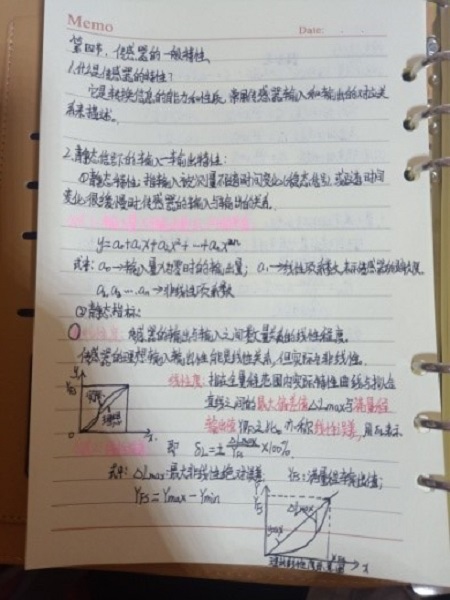 Memo
Date:
第四节、传感器的一般特性。
1.什么是传感器的特性?
它是转换信息的能力和性质,常用传感器输入和输出的对应关
系来描述。
2.静态信号下的输入—输出特性:
①静态特性:指输入被测量不随时间变化(静态信号)或随时间
变化很缓慢时传感器的输入与输出的关系.
y=a₀+a₁x+a₂x²+…+aₙxⁿ
式中: a₀→输入量x为零时的输出量; a₁→线性项系数,
a₂,a₃…aₙ→非线性项系数
②静态指标:
传感器的输出与输入之间数量关系的线性程度.
传感器的理想输入输出性能是线性关系,但实际为非线性.
线性度:指在全量程范围内实际特性曲线与拟合
直线之间的最大偏差值△Lmax与满量程
输出值YFS之比.亦称线性误差,用δL表示.
即 δL=±△Lmax/YFS×100%.
式中: △Lmax:最大非线性绝对误差 YFS:满量程输出值;
YFS=Ymax-Ymin
YFS
△Lmax
x